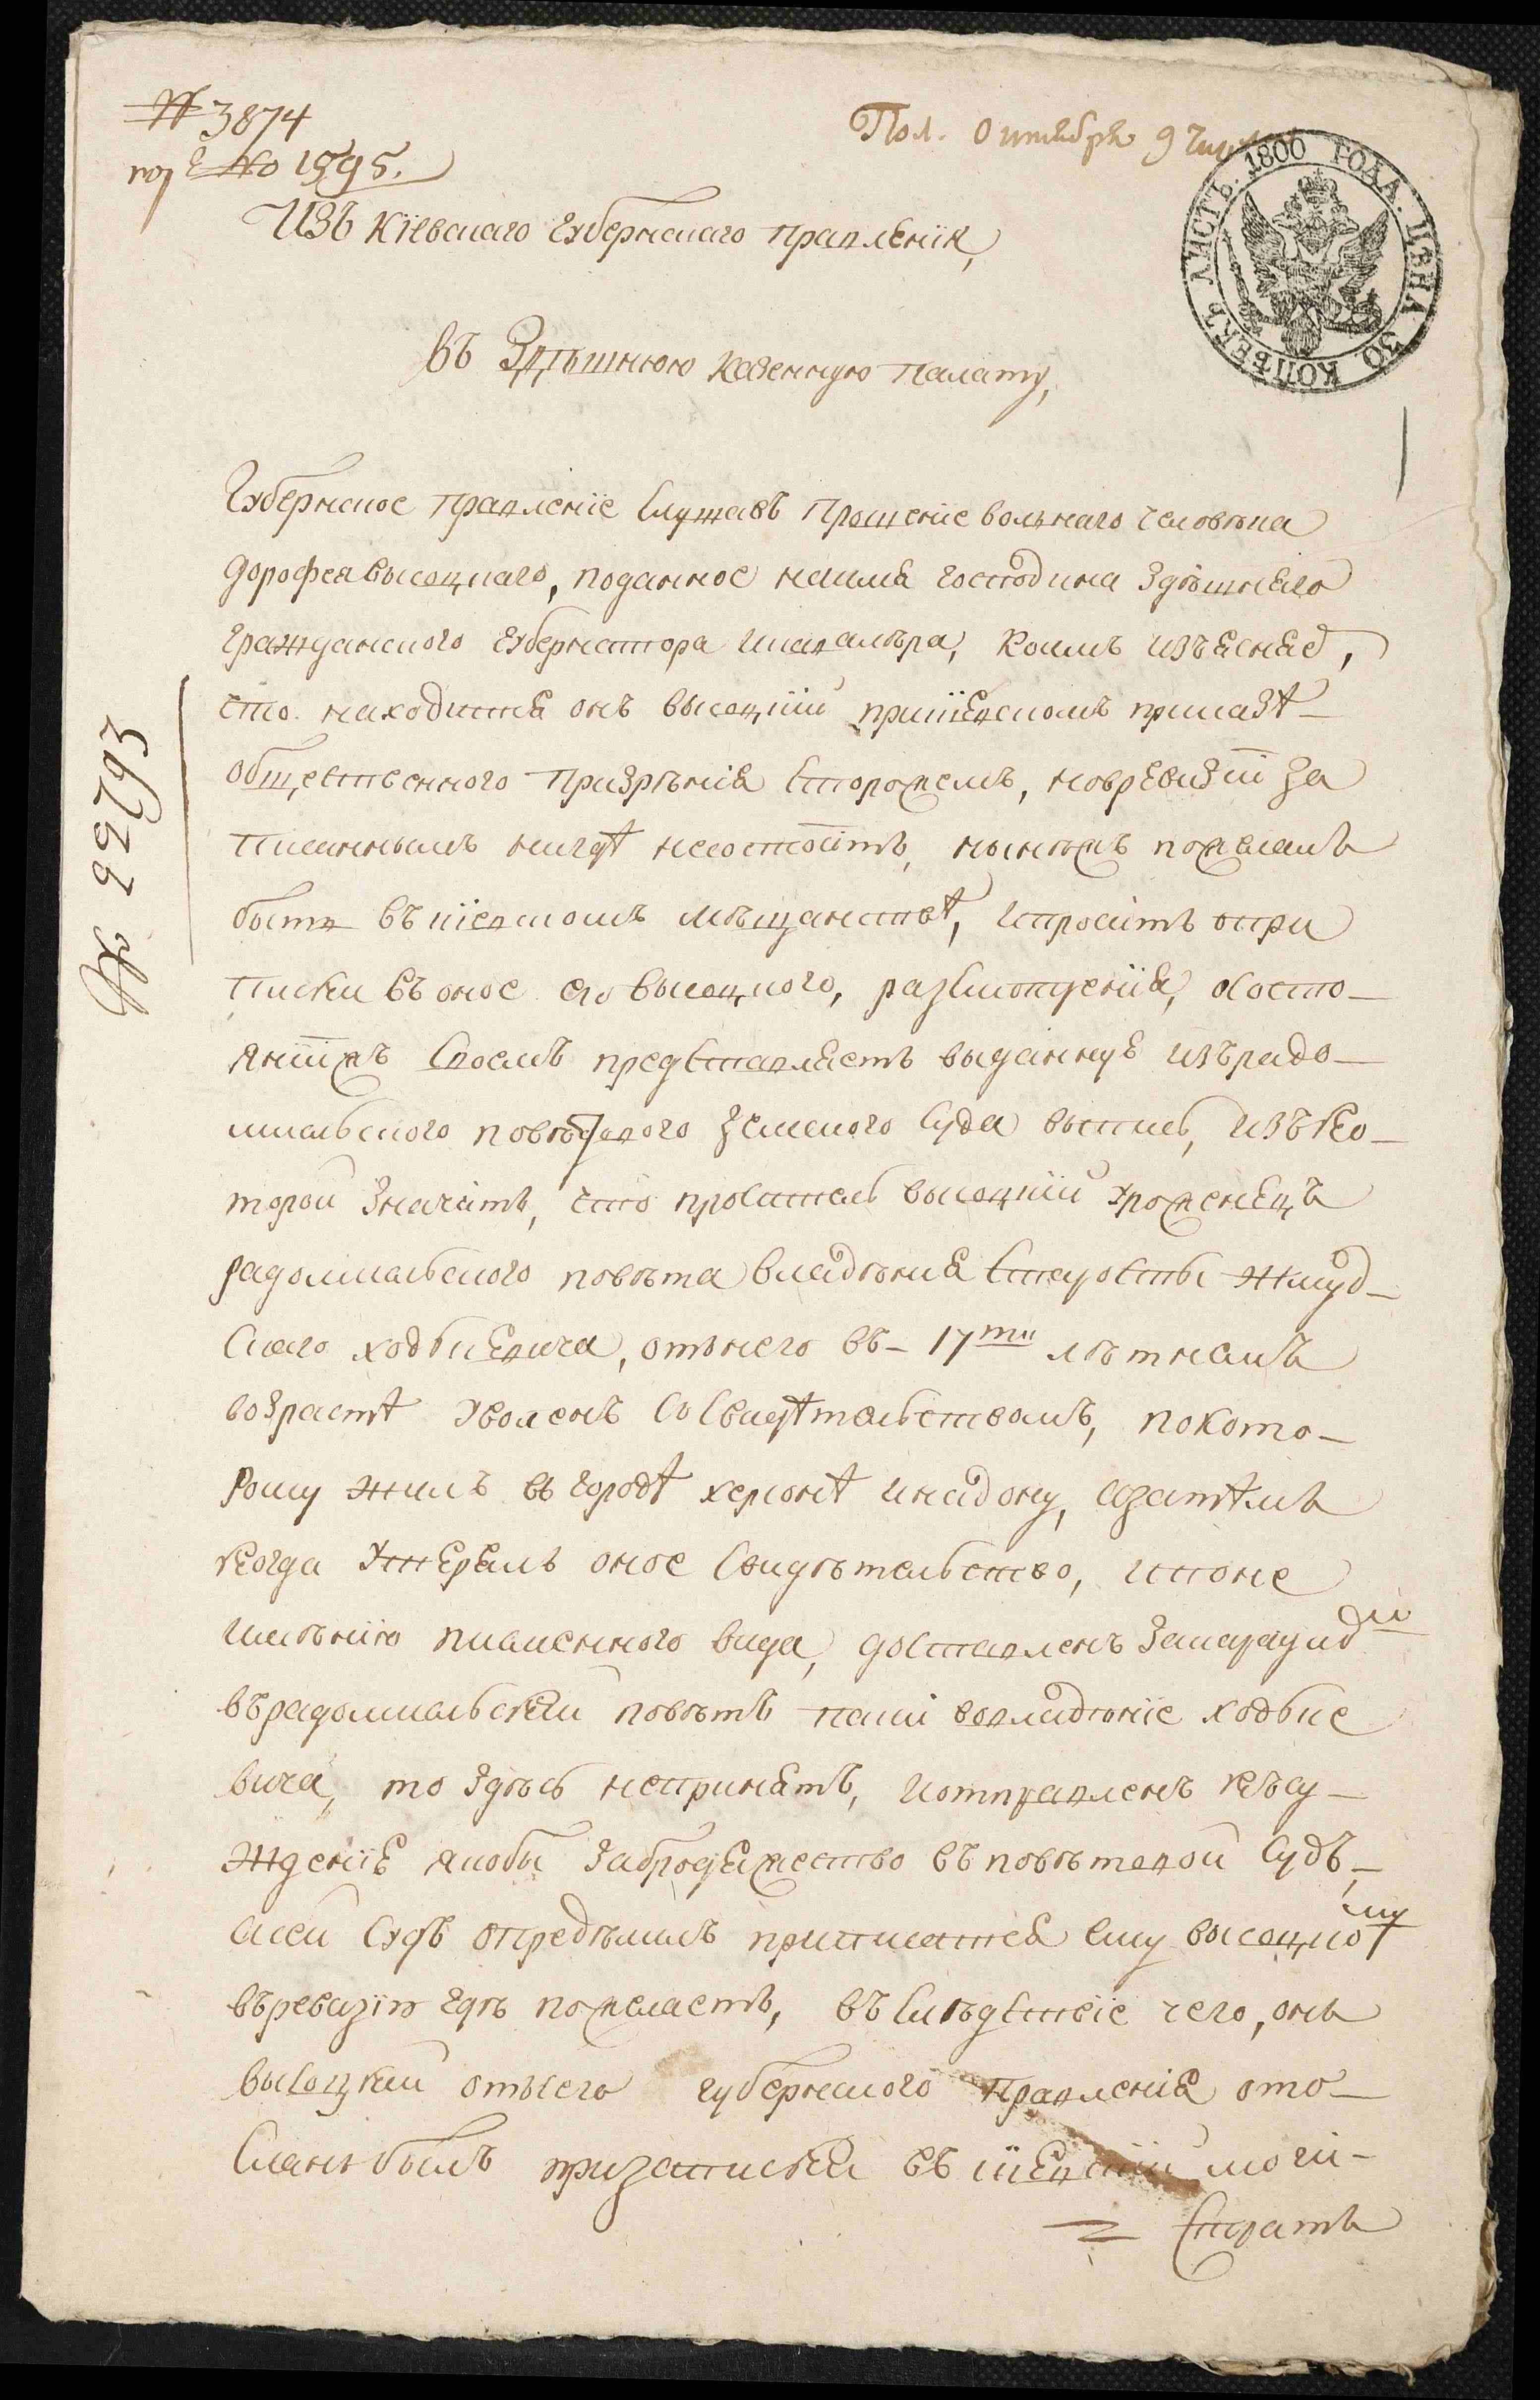 № 3874
под № 1595.
Пол. Октября 9 числа
ЛИСТЪ. 1800 ГОДА. ЦѢНА 30 КОПѢЕКЪ
Изъ Кіевскаго Губернскаго правленія,
въ Здѣшнюю казенную палату,
№ 22793
Губернское правленіе слушавъ прошеніе вольнаго человѣка
Дорофея высоцкаго, поданное на имя господина здѣшняго
гражданского губернатора и кавалѣра, коимъ изъясняя,
что находится онъ высоцкій при кіевскомъ приказѣ
общественного призрѣнія сторожемъ, но в ревизіи за
писаннымъ нигдѣ не состоитъ, нынѣжъ пожелалъ
быть въ кіевскомъ мѣщанствѣ, и проситъ о при
писки въ оное его высоцкого, разсмотренія, о состо-
яніижъ своемъ представляетъ выданную изъ радо-
мысльского повѣтового земского суда выпись, изъ ко-
торой значитъ, что проситель высоцкій уроженецъ
радомысльского повѣта владѣнія старосты жмуд-
скаго ходкевича, отъ него въ 17ти лѣтнемъ
возрастѣ уволенъ со свидѣтельствомъ, по кото-
рому жилъ въ городѣ херсонѣ и на дону, а затѣмъ
когда утерялъ оное свидѣтельство, и по не
имѣнію писменного вида, доставленъ за караулой
въ радомысльскій повѣтъ паки во владѣніе ходке
вича, то здѣсь не принятъ, и отправленъ къ су-
жденію якобы за бродяжество въ повѣтовой судъ,
а сей судъ опредѣлилъ приписатся ему высоцкому
въ ревизію гдѣ пожелаетъ, въ слѣдствіе чего, онъ
высоцкій отъ сего губернского правленія ото-
сланъ былъ при запискѣ въ кіевскій маги-
стратъ